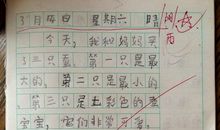 3月14日 星期六 晴
今天，我和妈妈买
3三只蛋，第一只是最
大的，第二只是最小的
，第三只是五彩色的蛋
宝宝，它们非常可爱。